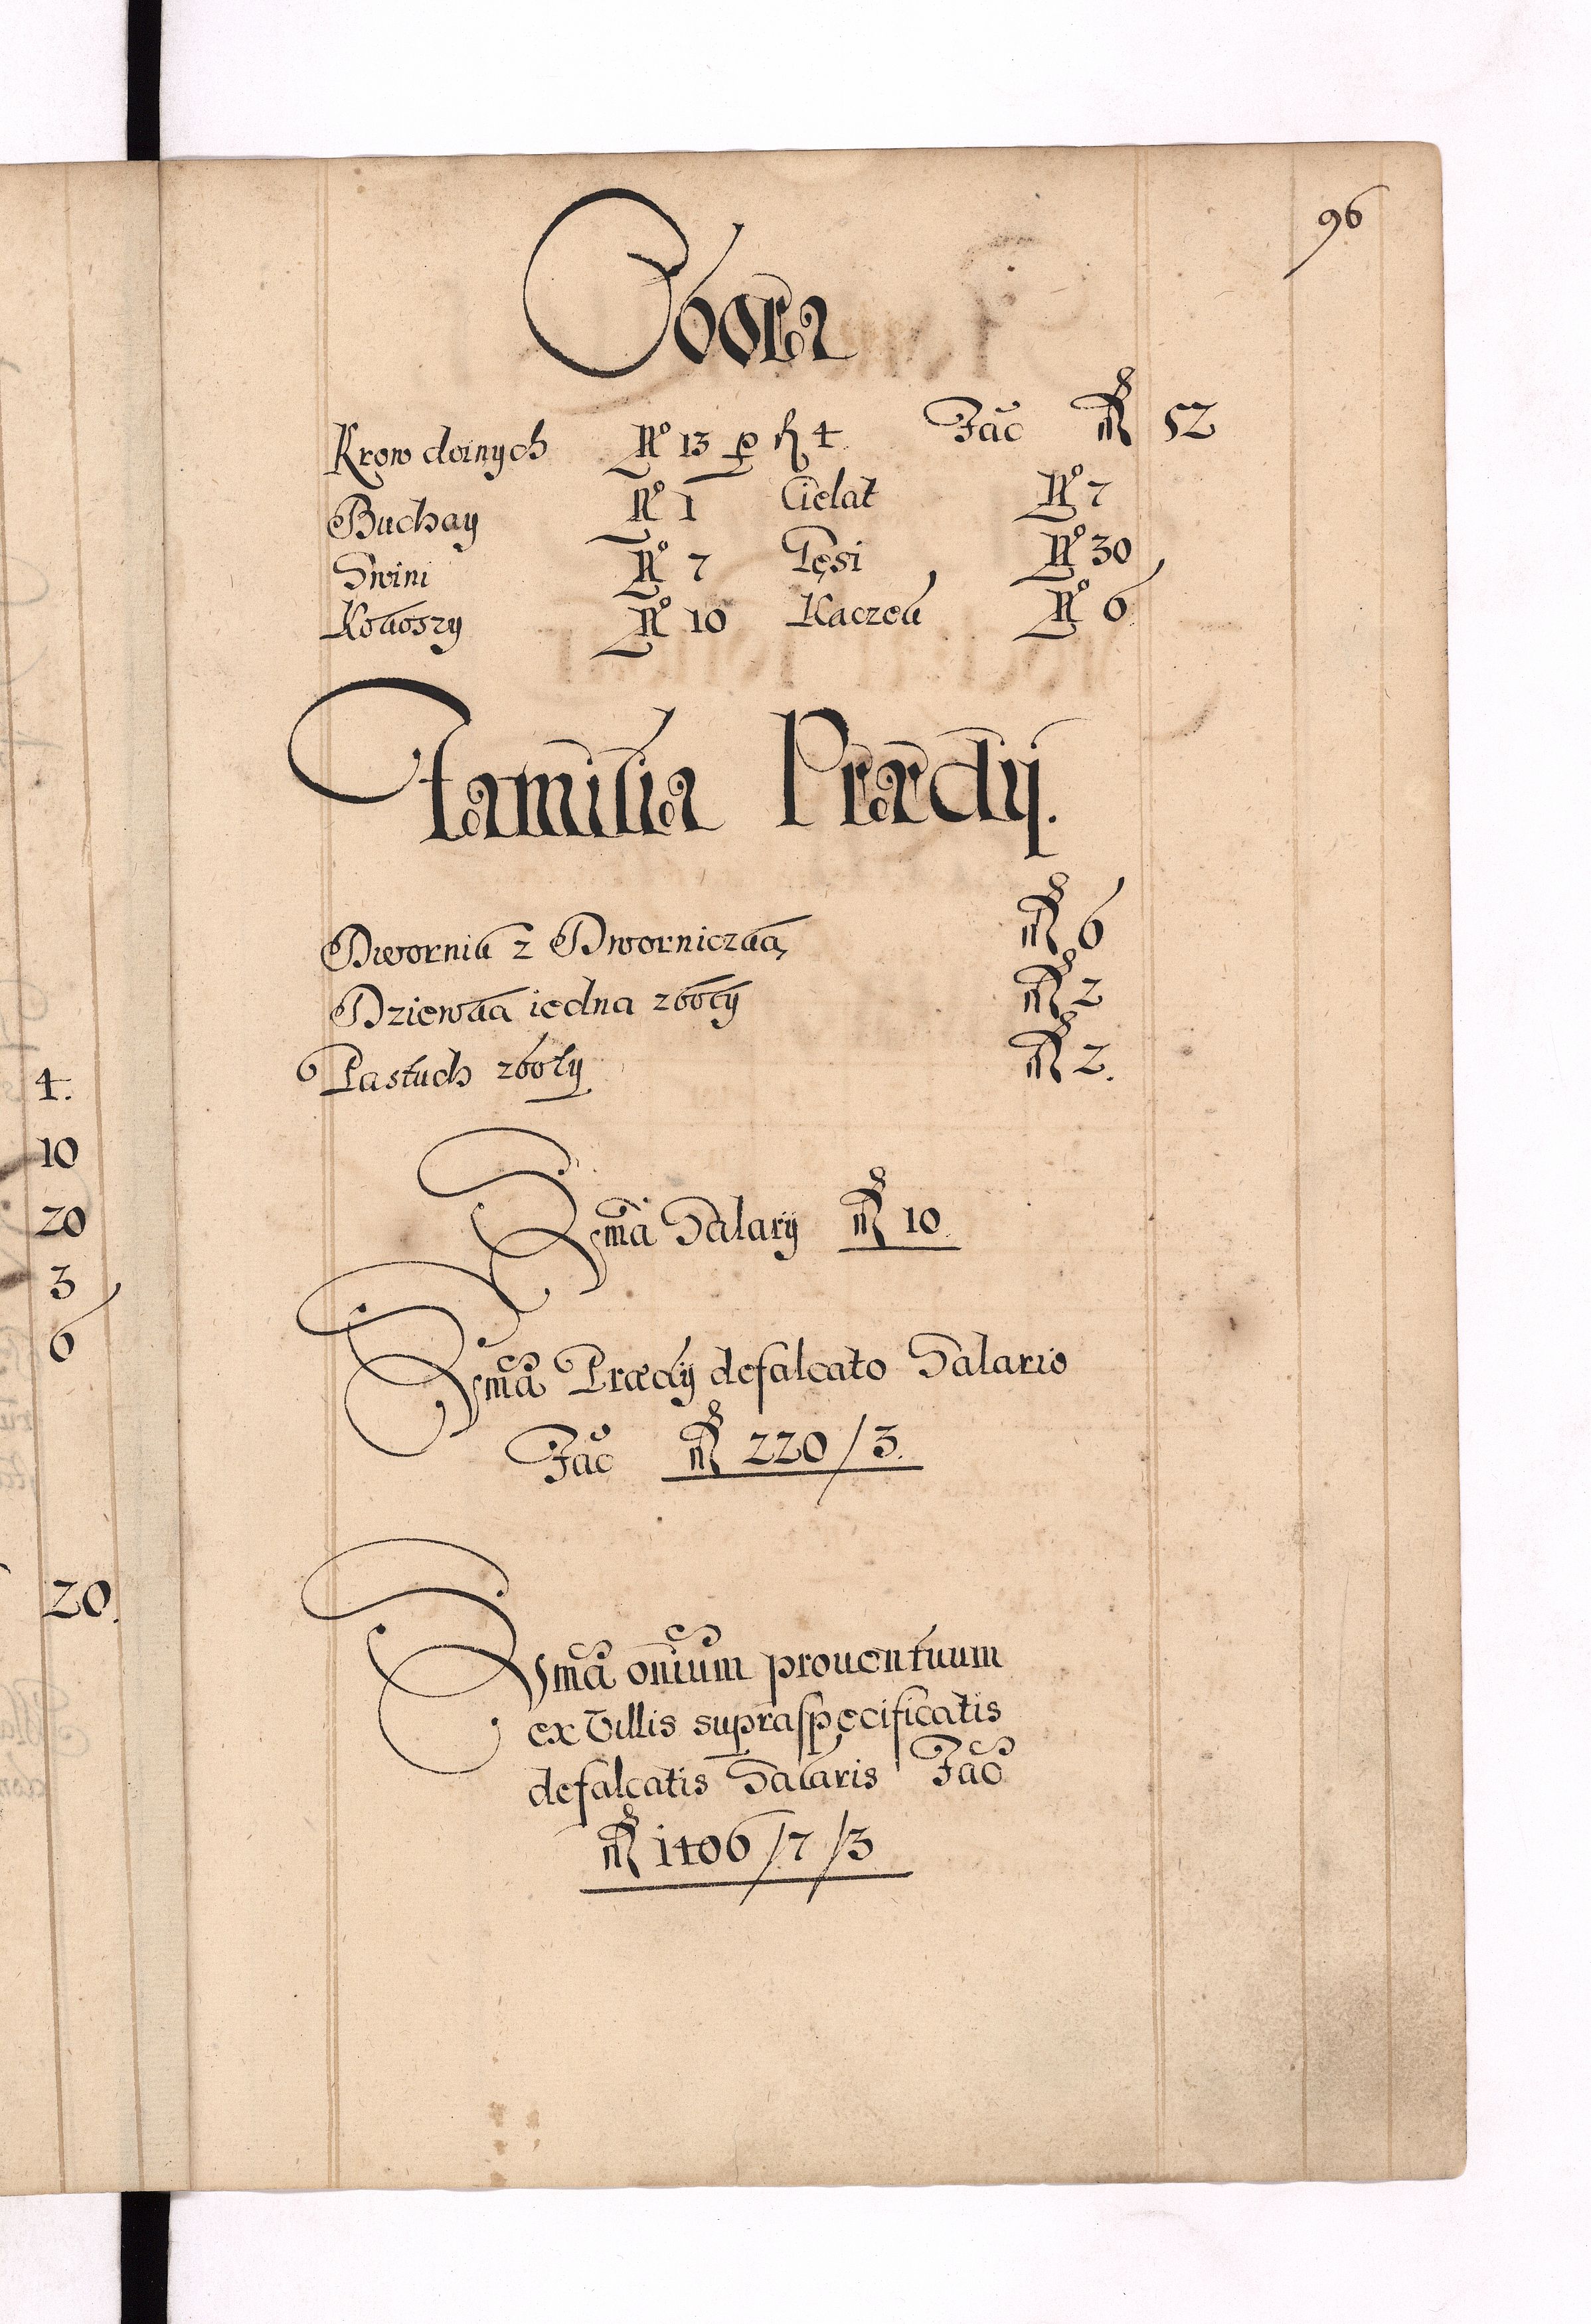 96
Obora
Krow doinych No 13 p fl 4. Fac̃ fl 52
Buchay No 1 Cielat No 7
Swini No 7 Gęsi No 30
Kokoszy No 10 Kaczek No 6
Familia Prædij.
Dwornik z Dworniczką fl 6
Dziewka iedna zboty fl 2
Pastuch zboty fl 2.
Sm̃a Salarij fl 10.
Sm̃a Prædij defalcato Salario
Fac̃ fl 220/3.
Sm̃a om̃ium prouentuum
ex Villis supraspecificatis
defalcatis Salaris Fac̃
fl 1406/7/3
4.
10
20
3
6
20.